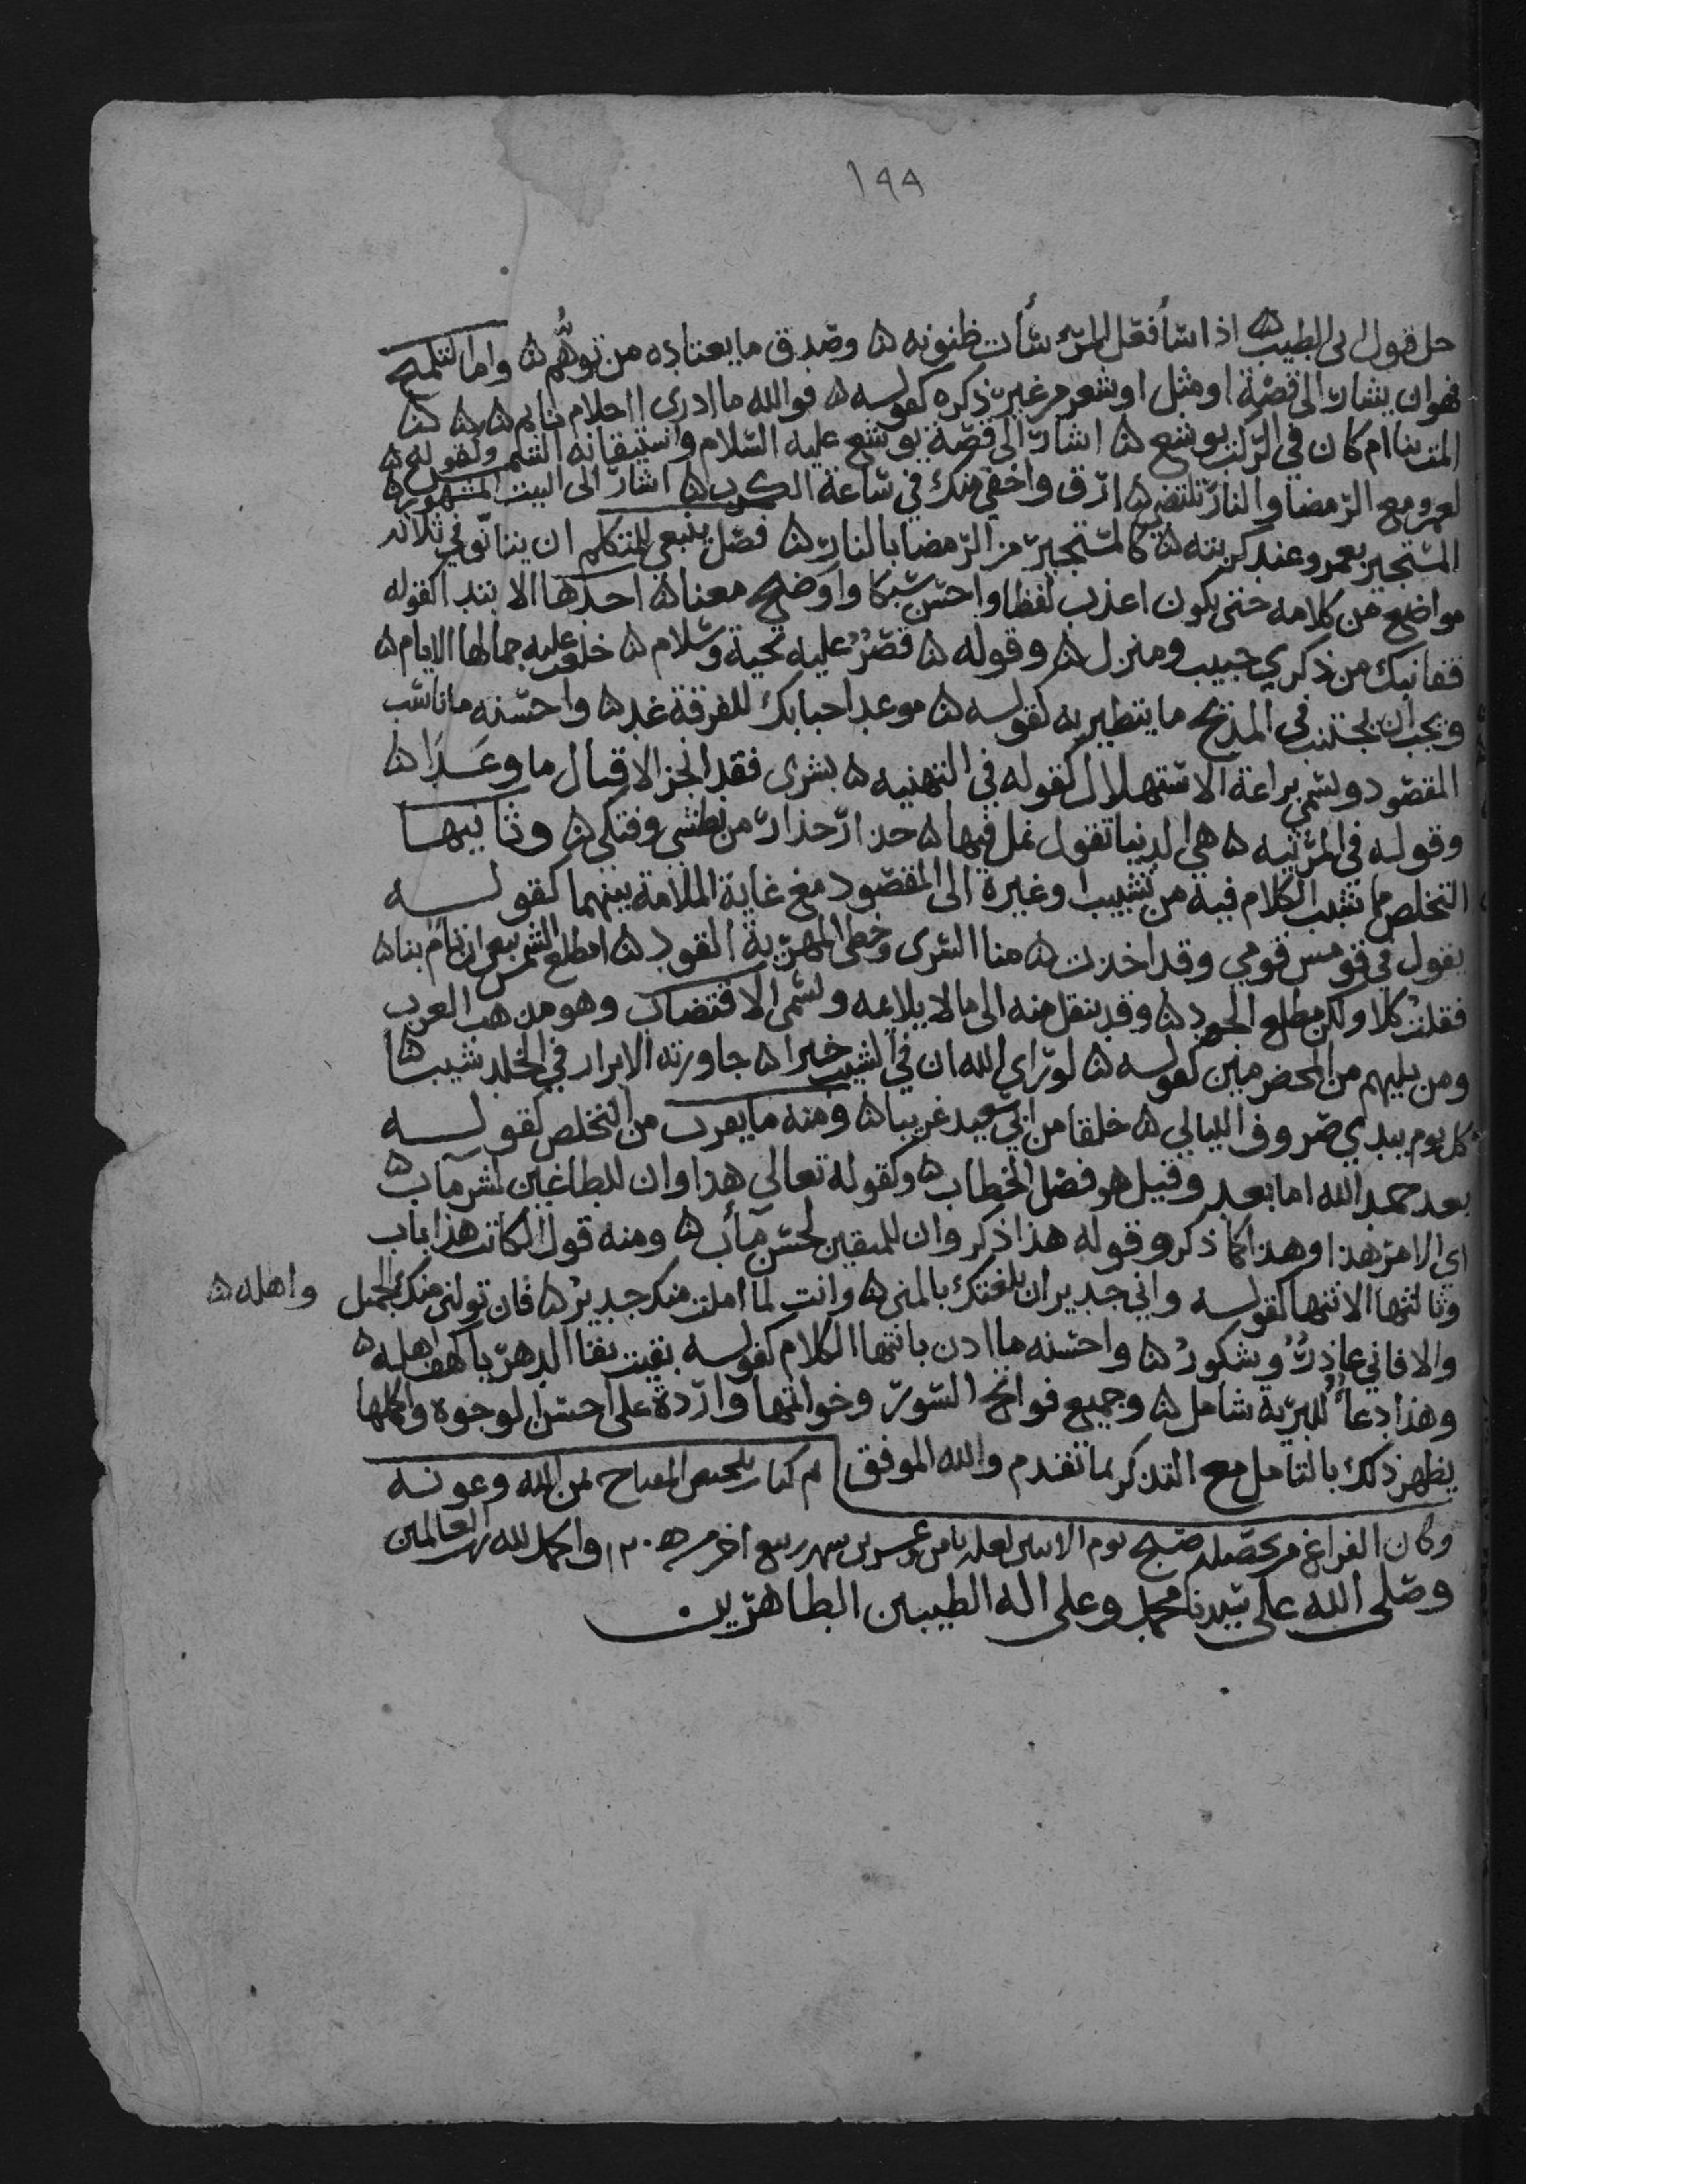 ١٩٩
حل قول ابي الطيب ه اذا ساء فعل المرء ساءت ظنونه ه وصدق ما يعتاده من توهم ه واما التلميح
فهو ان يشار الى قصة او مثل او شعر من غير ذكره كقوله ه فوالله ما ادري ااحلام نايم ه
المت بنا ام كان في الركب يوشع ه اشار الى قصة يوشع عليه السلام واستيقافه الشمس وكقوله ه
لعمرو مع الرمضا والنار تلتضي ه ارق واخفى منك في ساعة الكرب ه اشار الى البيت المشهور ه
المستجير بعمرو عند كربته ه كالمستجير من الرمضا بالنار ه فصل ينبغي للمتكلم ان يتانق في ثلاثه
مواضع من كلامه حتى يكون اعذب لفظا واحسن سبكا واوضح معنا ه احدها الابتدا كقوله
قفا نبك من ذكرى حبيب ومنزل ه وقوله ه قصرٌ عليه تحية وسلام ه خلعت عليه جمالها الايام ه
ويجب ان يجتنب في المديح ما يتطير به كقوله ه موعد احبابك للفرقة غد ه واحسنه ما ناسب
المقصود ويسمى براعة الاستهلال كقوله في التهنيه ه بشرى فقد انجز الاقبال ما وعدا ه
وقوله في المرثيه ه هي الدنيا تقول بمل فيها ه حذار حذار من بطشي وفتكي ه وثانيها
التخلص مما شبب الكلام فيه من تشبيب وغيره الى المقصود مع غاية الملامة بينهما كقوله
يقول في قومس قومي وقد اخذت ه منا السرى وخطى المهرية القود ه امطلع الشمس تبغي ان تام بنا ه
فقلت كلا ولكن مطلع الجود ه وقد ينتقل منه الى ما لا يلائمه ويسمى الاقتضاب وهو مذهب العرب
ومن يليهم من المخضرمين كقوله ه لو راى الله ان في الشيب خيرا ه جاورته الابرار في الخلد شيبا ه
كل يوم يبدي صروف الليالي ه خلقا من ابي سعيد غريبا ه ومنه ما يقرب من التخلص كقوله
بعد حمد الله اما بعد وقيل هو فصل الخطاب ه وكقوله تعالى هذا وان للطاغين لشر مآب ه
اي الامر هذا او هذا كما ذكر وقوله هذا ذكر وان للمتقين لحسن مآب ه ومنه قول الكاتب هذا باب
وثالثها الانتها كقوله واني جدير ان بلغتك بالمنى ه وانت لما املت منك جدير ه فان تولني منك الجميل واهله ه
والا فاني عاذرٌ وشكورُ ه واحسنه ما اذن بانتها الكلام كقوله بقيت بقا الدهر يا كهف اهله ه
وهذا دعاءٌ للبرية شامل ه وجميع فواتح السور وخواتمها واردة على احسن الوجوه واكملها
يظهر ذلك بالتامل مع التذكر لما تقدم والله الموفق تم كتاب تلخيص المفتاح بمن الله وعونه
وكان الفراغ من تحصيله صبح يوم الاثنين لعله ثامن وعشرين شهر ربيع اخر والحمد لله رب العالمين
وصلى الله على سيدنا محمد وعلى اله الطيبين الطاهرين